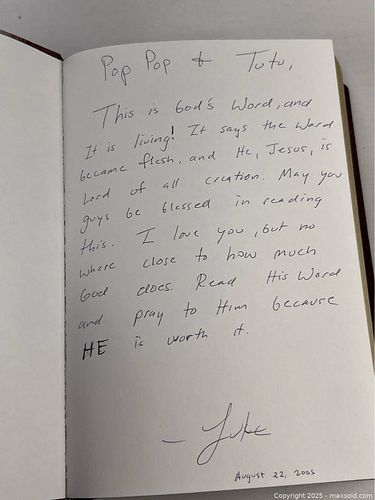 Pop Pop & Tutu,
This is God's Word, and
It is living! It says the Word
became flesh, and He, Jesus, is
Lord of all creation. May you
guys be blessed in reading
this. I love you, but no
where close to how much
God does. Read His Word
and pray to Him because
HE is worth it.
- Luke
August 22, 2005
Copyright 2025 - maxsold.com